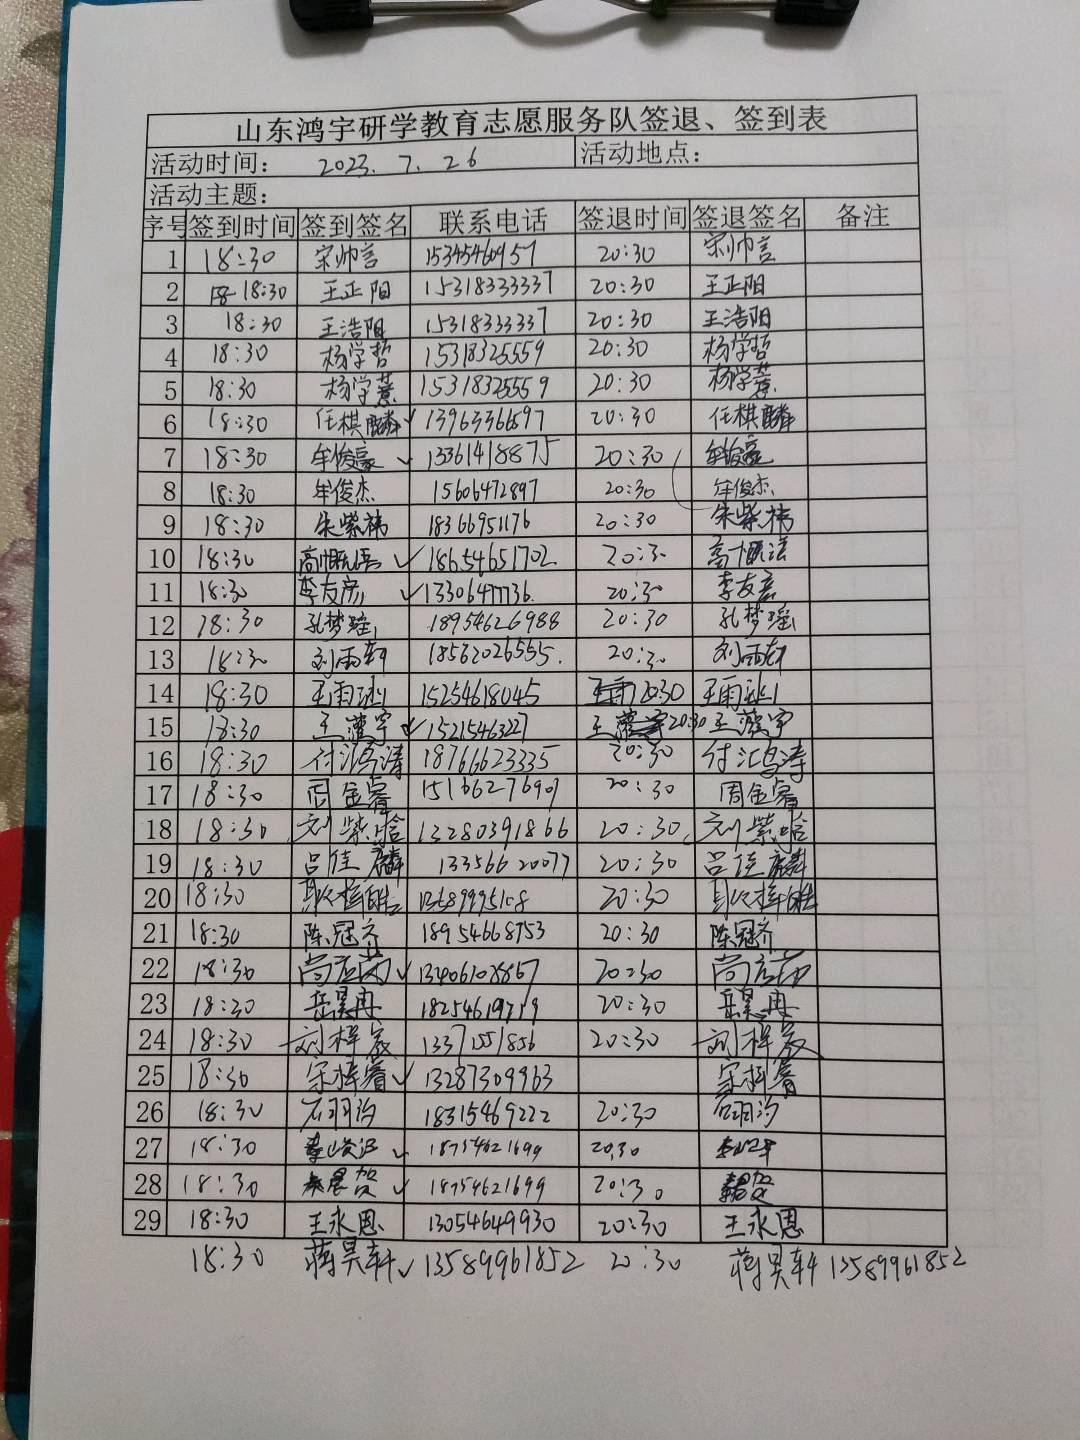 山东鸿宇研学教育志愿服务队签退、签到表
活动时间： 2023. 7. 26 活动地点：
活动主题：
序号 签到时间 签到签名 联系电话 签退时间 签退签名 备注
1 18:30 宋帅言 15345460957 20:30 宋帅言
2 18:30 王正阳 15318333337 20:30 王正阳
3 18:30 王浩阳 15318333337 20:30 王浩阳
4 18:30 杨学哲 15318325559 20:30 杨学哲
5 18:30 杨学薏 15318325559 20:30 杨学薏
6 18:30 任棋麟 ✓ 13963366597 20:30 任棋麟
7 18:30 牟俊豪 ✓ 13361418875 20:30 牟俊豪
8 18:30 牟俊杰 15606472897 20:30 牟俊杰
9 18:30 朱紫祎 18366951176 20:30 朱紫祎
10 18:30 ✓ 18654651702 20:30
11 18:30 李友彦 ✓ 13306477736. 20:30 李友彦
12 18:30 孔梦瑶 18954626988 20:30 孔梦瑶
13 18:30 刘雨轩 18562026555. 20:30 刘雨轩
14 18:30 15254618045 20:30
15 18:30 ✓ 15215463227 20:30
16 18:30 18766623335 20:30
17 18:30 周金睿 15166276909 20:30 周金睿
18 18:30 刘紫晗 13280391866 20:30 刘紫晗
19 18:30 吕佳麟 13356620077 20:30 吕佳麟
20 18:30 20:30
21 18:30 陈冠齐 18954668753 20:30 陈冠齐
22 18:30 ✓ 13406108867 20:30
23 18:30 岳昊冉 18254619719 20:30 岳昊冉
24 18:30 13371551856 20:30
25 18:30 宋梓萱 ✓ 13287309963 宋梓萱
26 18:30 石羽汐 18315469222 20:30 石羽汐
27 18:30 ✓ 18754621699 20:30
28 18:30 ✓ 18754621699 20:30
29 18:30 王永恩 13054649930 20:30 王永恩
18:30 蒋昊轩 ✓ 13589961852 20:30 蒋昊轩 13589961852